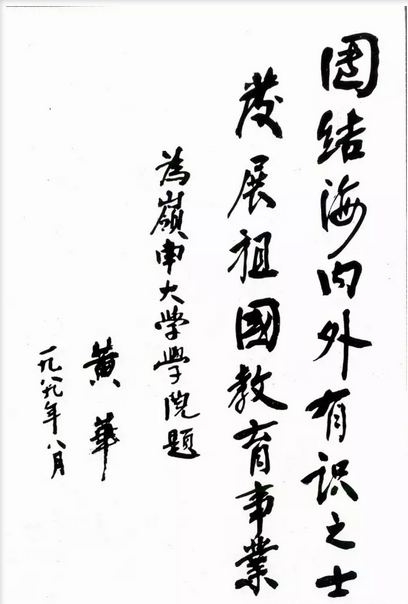 团结海内外有识之士
发展祖國教育事業
為嶺南大学學院题
黄華
一九八九年八月